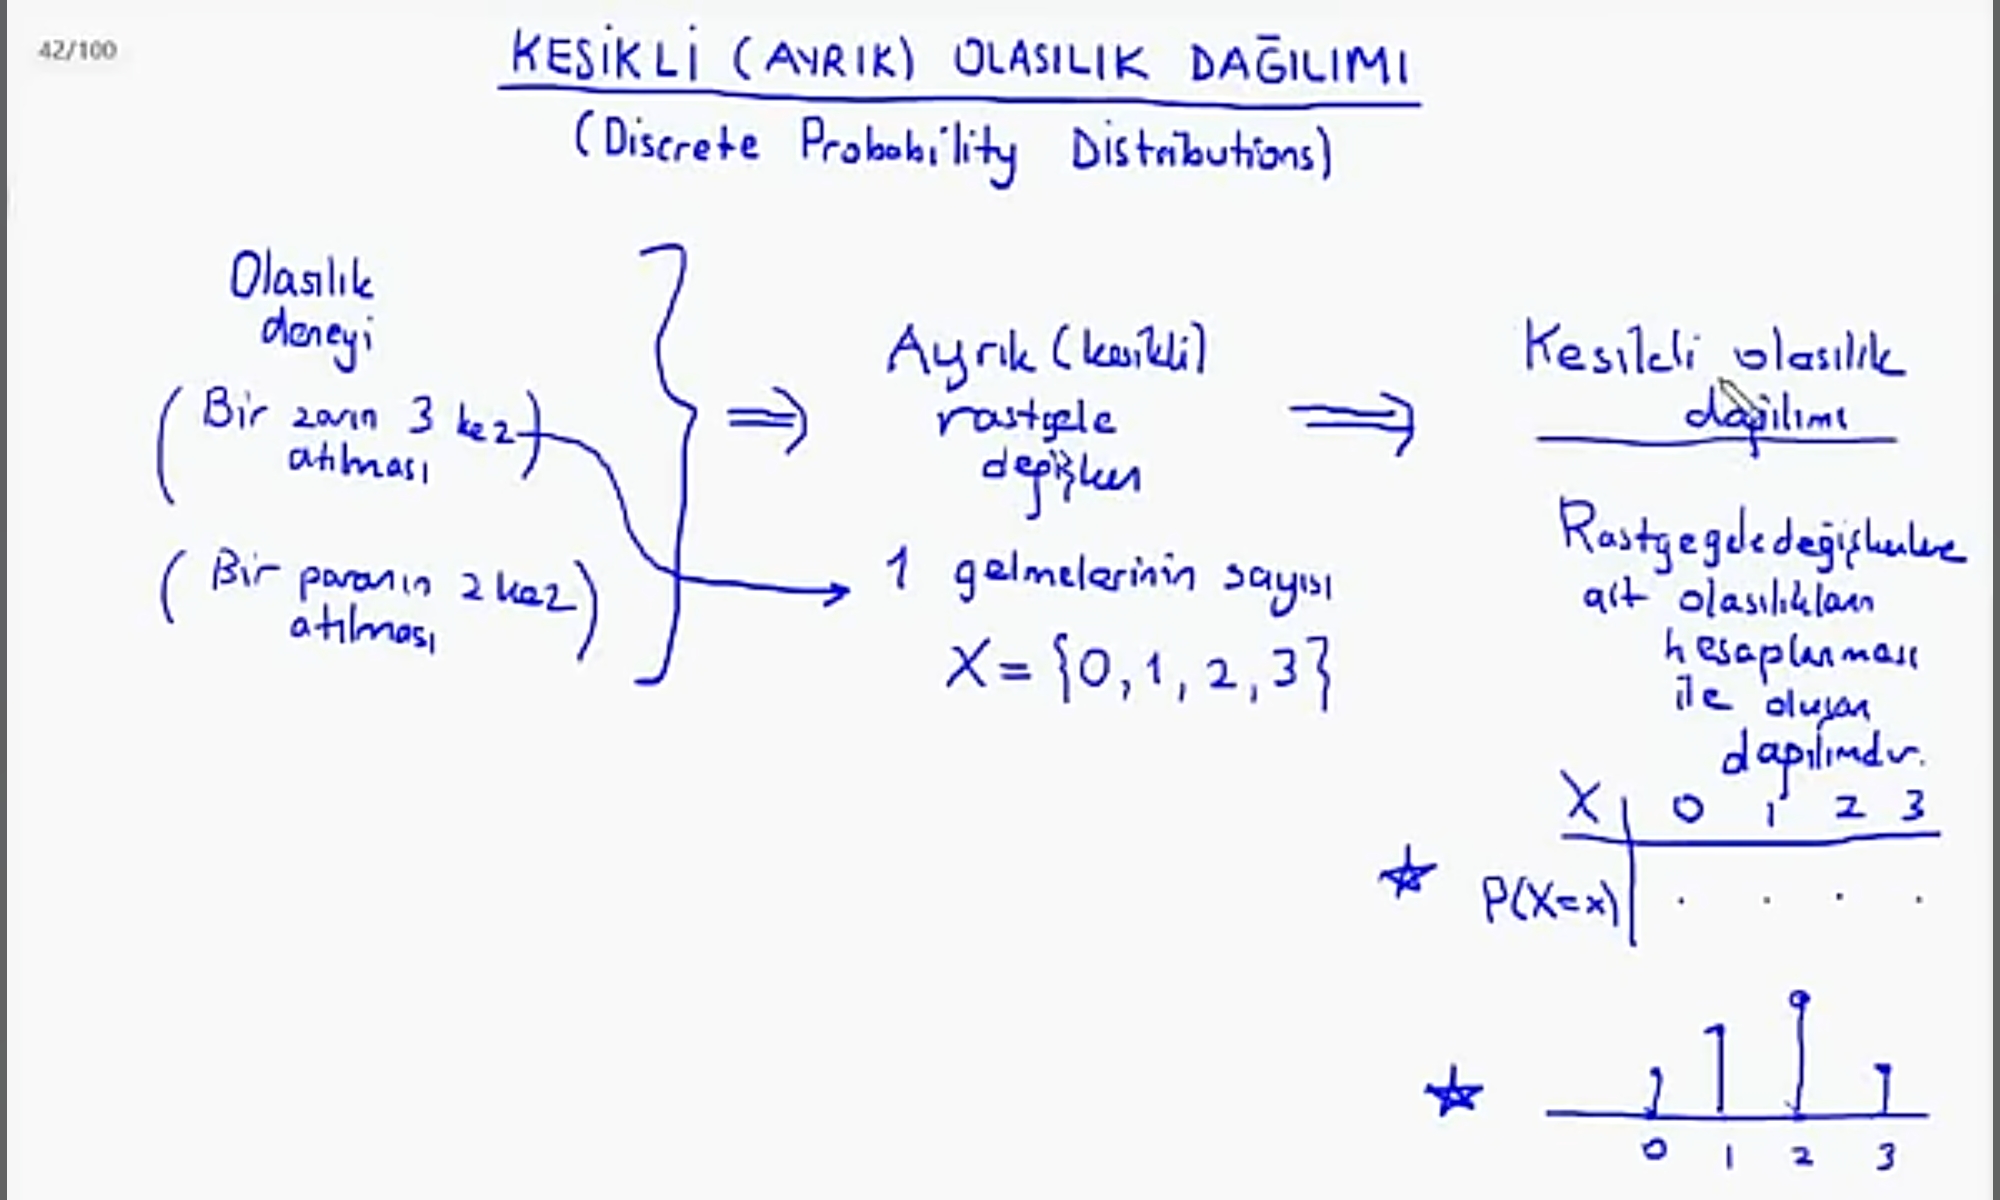 42/100
KESİKLİ (AYRIK) OLASILIK DAĞILIMI
(Discrete Probability Distributions)
Olasılık
deneyi
(Bir zarın 3 kez)
atılması
(Bir paranın 2 kez)
atılması
Ayrık (kesikli)
rastgele
değişken
1 gelmelerinin sayısı
X = {0, 1, 2, 3}
Kesikli olasılık
dağılımı
ait olasılıkların
hesaplanması
ile oluşan
dağılımdır.
X 0 1 2 3
P(X=x) . . . .
0 1 2 3